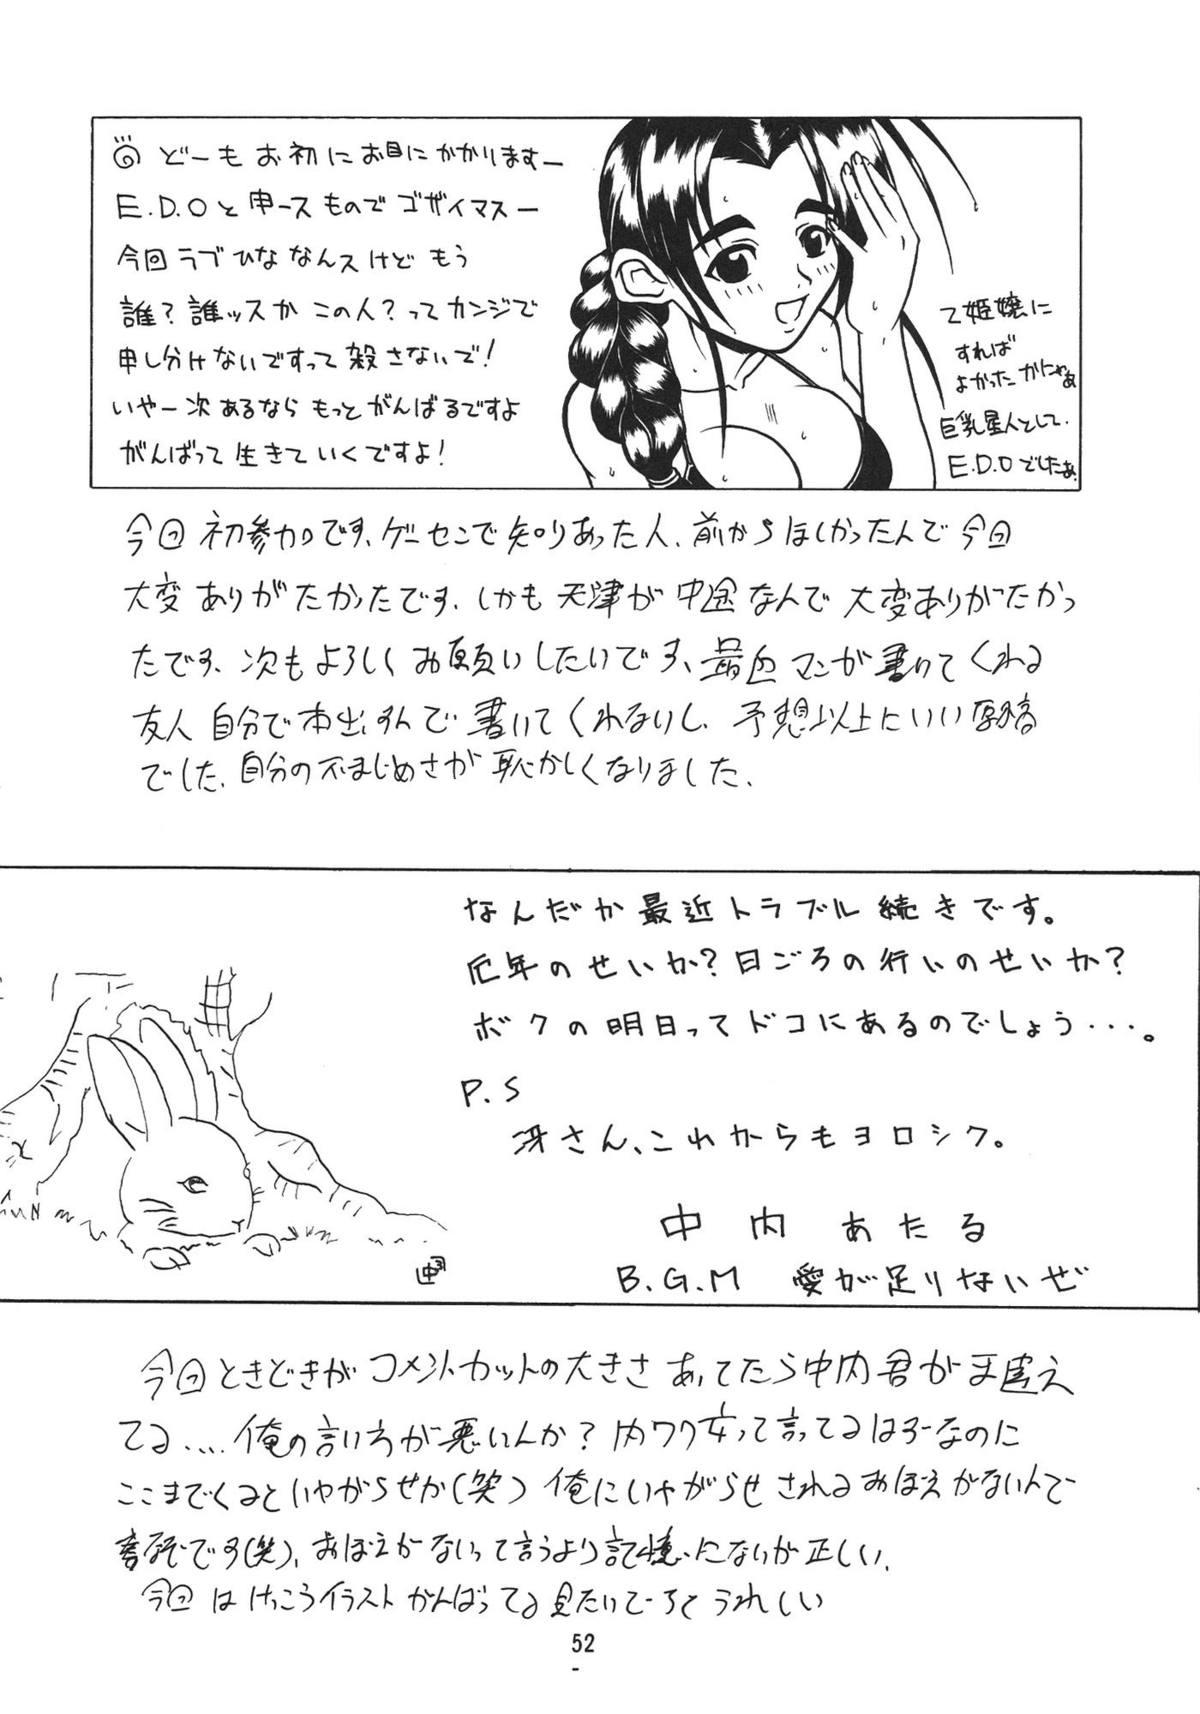 どーもお初にお目にかかりますー
E.D.Oと申ースものでゴザイマスー
今回ラブひななんスけどもう
誰?誰ッスかこの人?ってカンジで
申し分けないですって殺さないで!
いやー次あるならもっとがんばるですよ
がんばって生きていくですよ!
乙姫嬢に
すれば
よかったかにゃぁ
巨乳星人として.
E.D.Oでしたぁ.
今回初参加です、ゲーセンで知りあった人、前からほしかったんで今回
大変ありがたかったです、しかも天津が中途なんで大変ありがたかっ
たです、次もよろしくお願いしたいです、最近マンガ書いてくれる
友人自分で本出すんで書いてくれないし、予想以上にいい原稿
でした、自分の不まじめさが恥かしくなりました.
なんだか最近トラブル続きです。
厄年のせいか?日ごろの行いのせいか?
ボクの明日ってドコにあるのでしょう・・・。
P.S
冴さん、これからもヨロシク。
中内あたる
B.G.M 愛が足りないぜ
今回ときどきがコメントカットの大きさあってたら中内君がま違え
てる....俺の言い方が悪いんか?内ワク女って言ってるはずーなのに
ここまでくるといやがらせか(笑)俺にいやがらせされるおぼえがないんで
なぞです(笑)、おぼえがないって言うより記憶にないが正しい.
今回はけっこうイラストがんばってる見たいでーちとうれしい
52